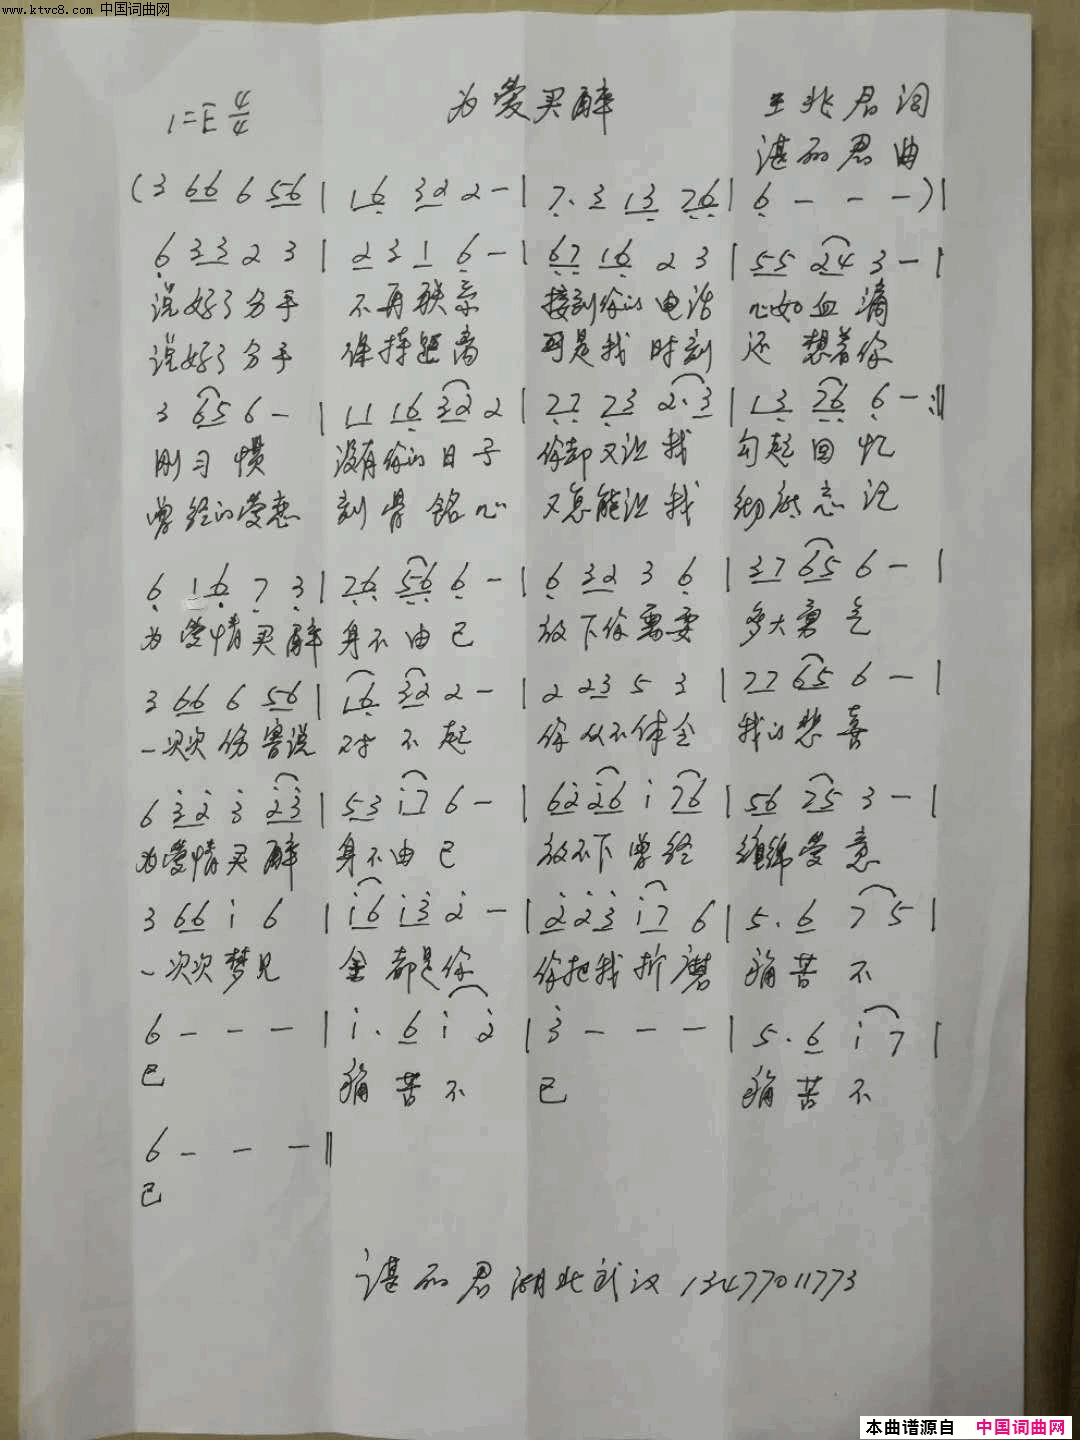 www.ktvc8.com 中国词曲网
1=E 4/4 为爱买醉 王兆君词
谌丽君曲
(3 66 6 56 | 16 32 2 - | 7· 3 13 76 | 6 - - -)|
6 33 2 3 | 2 3 1 6 - | 67 16 2 3 | 55 24 3 - |
说好了分手 不再联系 接到你的电话 心如血滴
说好了分手 保持距离 可是我时刻还想着你
3 65 6 - | 11 16 32 2 | 22 23 2·3 | 13 76 6 - :‖
刚习惯 没有你的日子 你却又让我 勾起回忆
曾经的爱恋 刻骨铭心 又怎能让我 彻底忘记
6 16 7 3 | 76 56 6 - | 6 32 3 6 | 37 65 6 - |
为爱情买醉 身不由己 放下你需要 多大勇气
3 66 6 56 | 16 32 2 - | 2 23 5 3 | 77 65 6 - |
一次次伤害说 对不起 你从不体会 我的悲喜
6 32 3 23 | 53 i7 6 - | 62 26 i 76 | 56 75 3 - |
为爱情买醉 身不由己 放不下曾经 缠绵爱意
3 66 i 6 | i6 i3 2 - | 2 23 i7 6 | 5· 6 7 5 |
一次次梦见 全都是你 你把我折磨 痛苦不
6 - - - | i· 6 i 2 | 3 - - - | 5· 6 i 7 |
已 痛苦不 已 痛苦不
6 - - - ‖
已
谌丽君湖北武汉 13477011773
本曲谱源自 中国词曲网